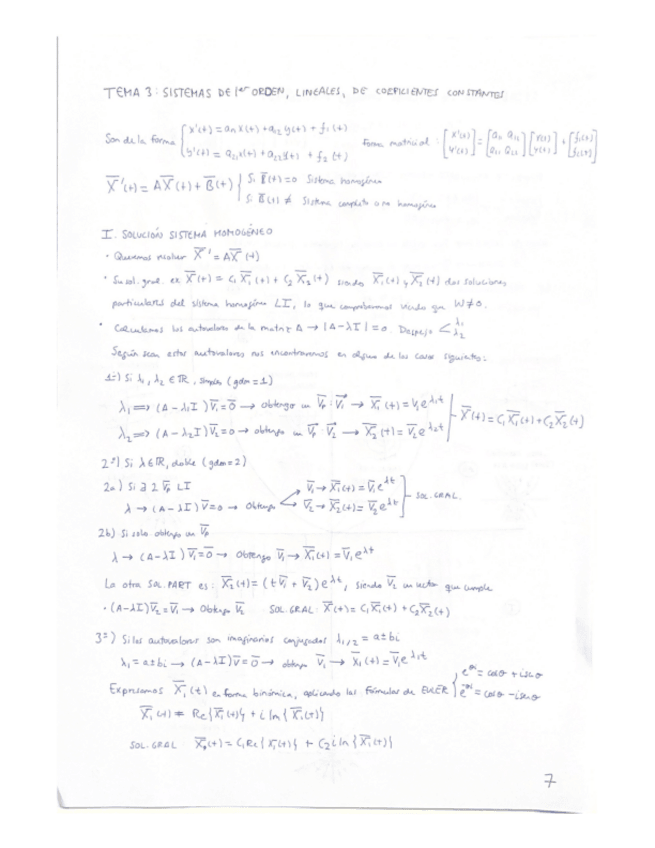 TEMA 3: SISTEMAS DE 1er ORDEN, LINEALES, DE COEFICIENTES CONSTANTES
Son de la forma { x'(t) = a11 x(t) + a12 y(t) + f1(t) Forma matricial: [x'(t) y'(t)] = [a11 a12 a21 a22] [x(t) y(t)] + [f1(t) f2(t)]
y'(t) = a21 x(t) + a22 y(t) + f2(t)
X̄'(t) = A X̄(t) + B̄(t) { Si B̄(t) = 0 Sistema homogéneo
Si B̄(t) ≠ Sistema completo o no homogéneo
I. SOLUCIÓN SISTEMA HOMOGÉNEO
· Queremos resolver X̄' = A X̄(t)
· Su sol. gral. es X̄(t) = C1 X̄1(t) + C2 X̄2(t) siendo X̄1(t) y X̄2(t) dos soluciones
particulares del sistema homogéneo LI, lo que comprobaremos viendo que W≠0.
· Calculamos los autovalores de la matriz A → |A-λI| = 0. Despejo < λ1 λ2
Según sean estos autovalores nos encontraremos en alguno de los casos siguientes:
1º) Si λ1, λ2 ∈ ℝ, simples (gdm = 1)
λ1 ⟹ (A-λ1I) V̄1 = 0̄ → obtengo un V̄p: V̄1 → X̄1(t) = V̄1 e^λ1t
X̄(t) = C1 X̄1(t) + C2 X̄2(t)
λ2 ⟹ (A-λ2I) V̄2 = 0 → obtengo un V̄p: V̄2 → X̄2(t) = V̄2 e^λ2t
2º) Si λ ∈ ℝ, doble (gdm = 2)
2a) Si ∃ 2 V̄p LI
V̄1 → X̄1(t) = V̄1 e^λt
λ → (A-λI) V̄ = 0 → Obtengo < SOL. GRAL.
V̄2 → X̄2(t) = V̄2 e^λt
2b) Si solo obtengo un V̄p
λ → (A-λI) V̄1 = 0̄ → Obtengo V̄1 → X̄1(t) = V̄1 e^λt
La otra SOL. PART es: X̄2(t) = (t V̄1 + V̄2) e^λt, siendo V̄2 un vector que cumple
· (A-λI) V̄2 = V̄1 → Obtengo V̄2 SOL. GRAL: X̄(t) = C1 X̄1(t) + C2 X̄2(t)
3º) Si los autovalores son imaginarios conjugados λ1/2 = a±bi
λ1 = a±bi → (A-λI) V̄ = 0̄ → obtengo V̄1 → X̄1(t) = V̄1 e^λ1t
Expresamos X̄1(t) en forma binómica, aplicando las Fórmulas de EULER { e^θi = cosθ + i senθ
e^-θi = cosθ - i senθ
X̄1(t) = Re{X̄1(t)} + i Im{X̄1(t)}
SOL. GRAL X̄p(t) = C1 Re{X̄1(t)} + C2 i Im{X̄1(t)}
7